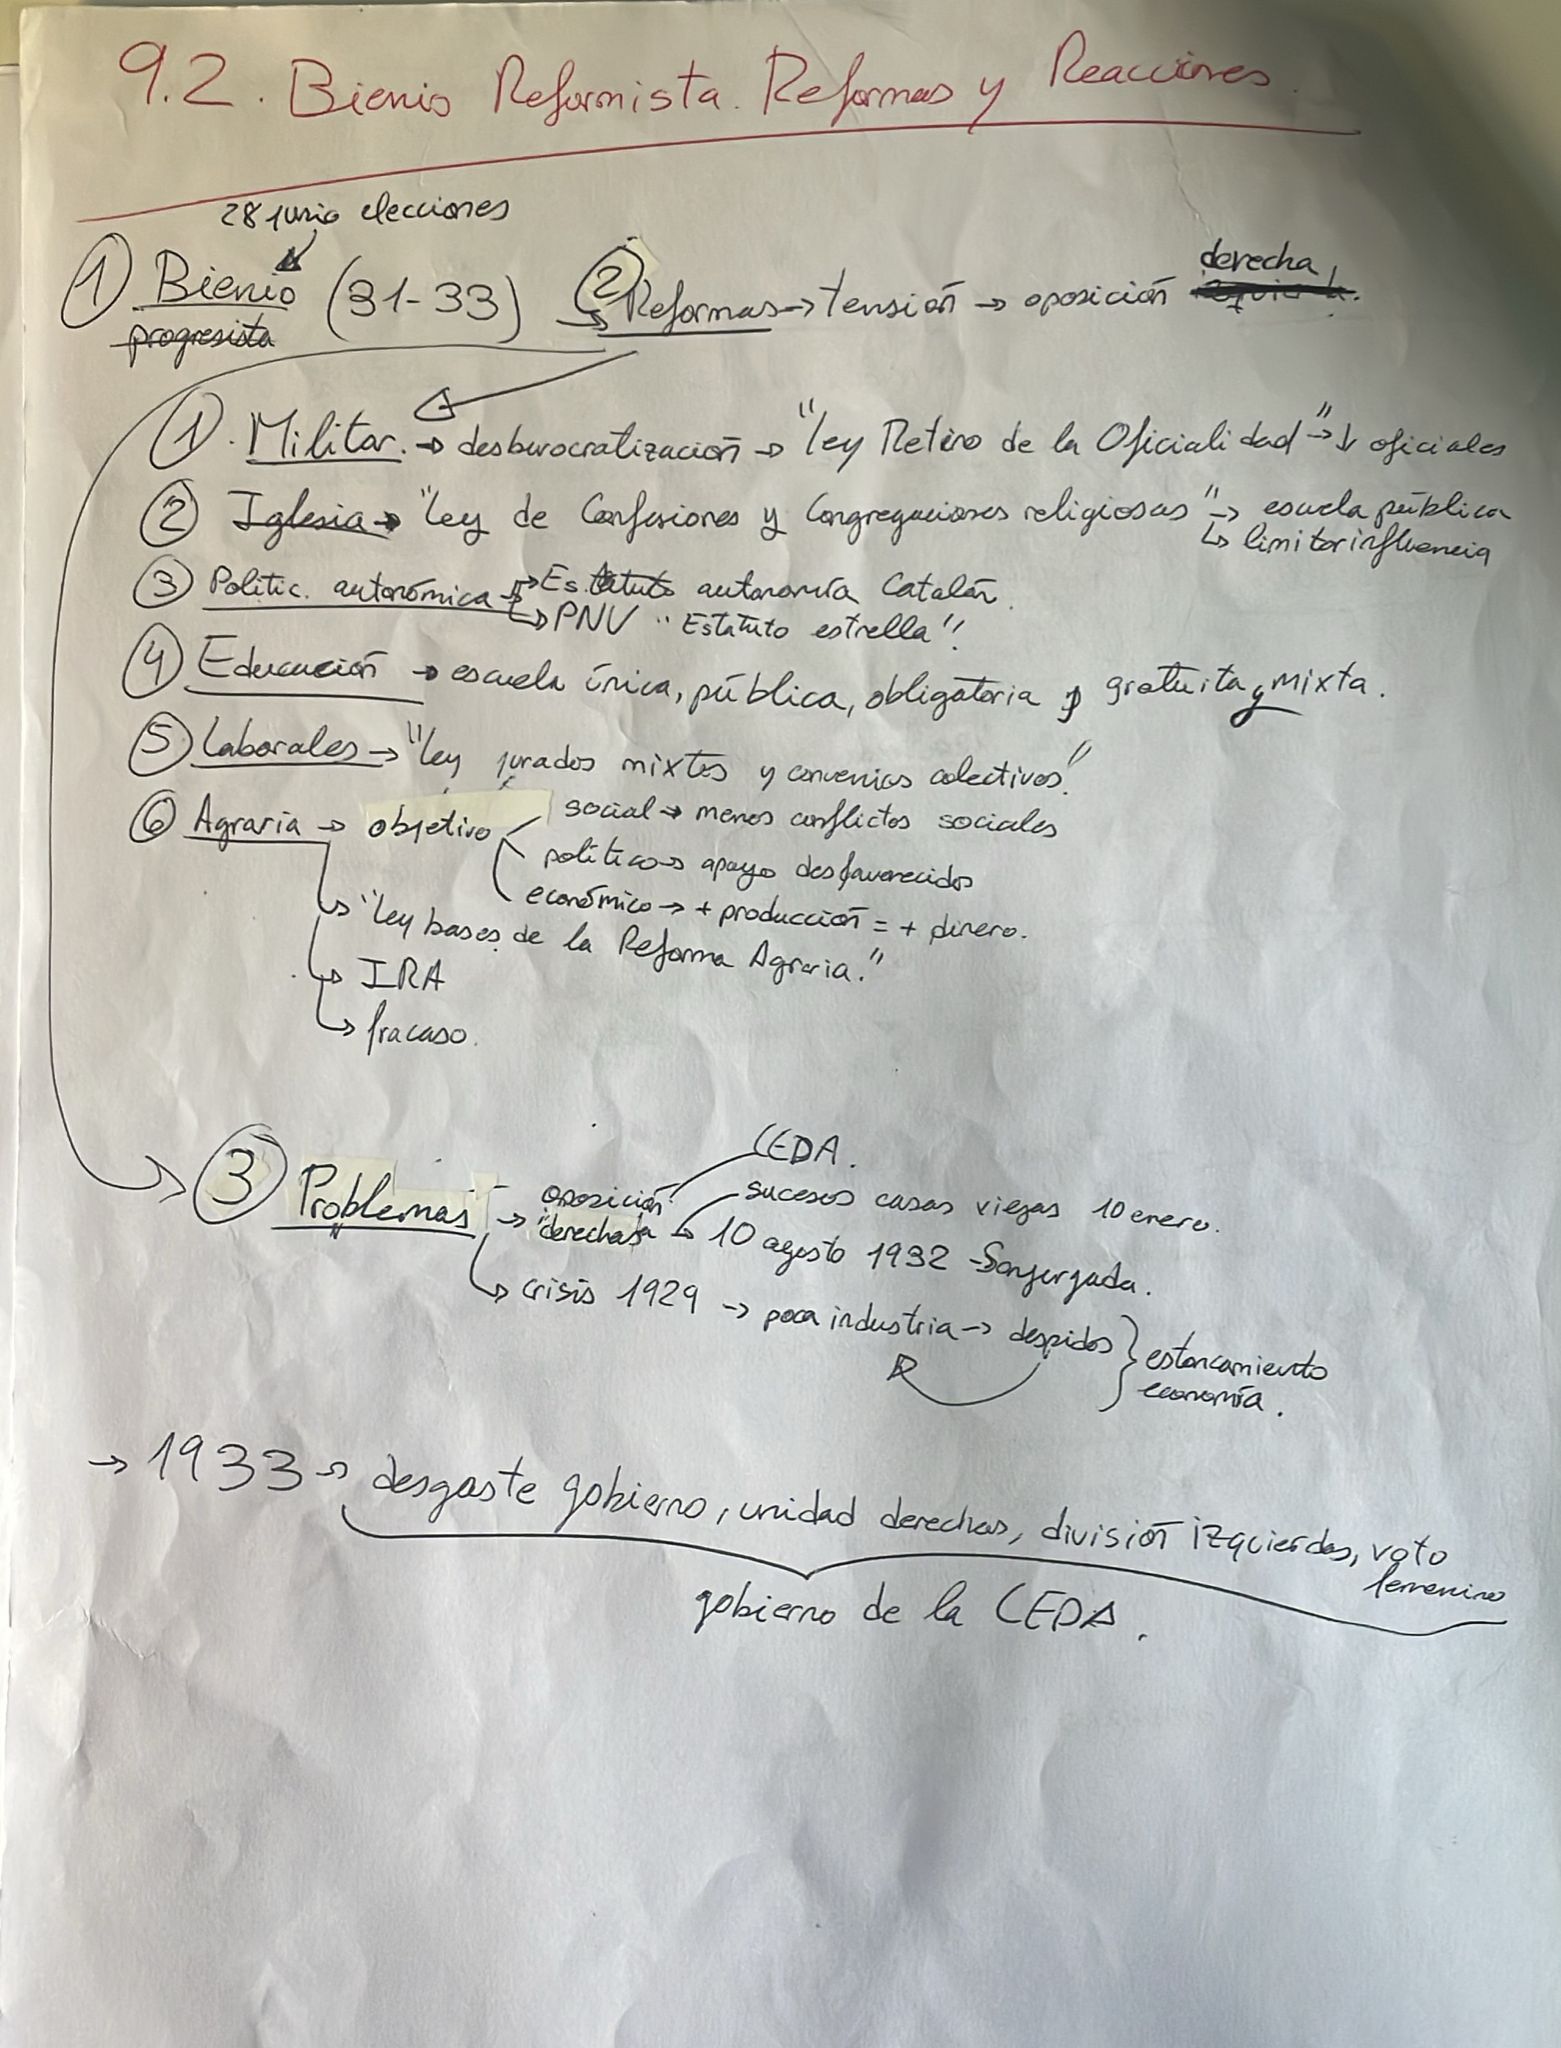 9.2. Bienio Reformista. Reformas y Reacciones.
28 junio elecciones
① Bienio (31-33) ② Reformas → tensión → oposición derecha
progresista
① Militar. → desburocratización → "Ley Retiro de la Oficialidad" → ↓ oficiales
② Iglesia → "Ley de Confesiones y Congregaciones religiosas" → escuela pública
↳ limitar influencia
③ Politic. autonómica → Estatuto autonomía Catalán.
↳ PNV "Estatuto estrella"
④ Educación → escuela única, pública, obligatoria y gratuita y mixta.
⑤ Laborales → "Ley jurados mixtos y convenios colectivos"
⑥ Agraria → objetivo social → menos conflictos sociales
político → apoyo desfavorecidos
económico → + producción = + dinero.
↳ "Ley bases de la Reforma Agraria."
↳ IRA
↳ fracaso.
CEDA.
③ Problemas → oposición sucesos casas viejas 10 enero.
derecha → 10 agosto 1932 - Sanjurjada.
↳ crisis 1929 → poca industria → despidos } estancamiento
economía.
→ 1933 → desgaste gobierno, unidad derechas, división izquierdas, voto
femenino
gobierno de la CEDA.